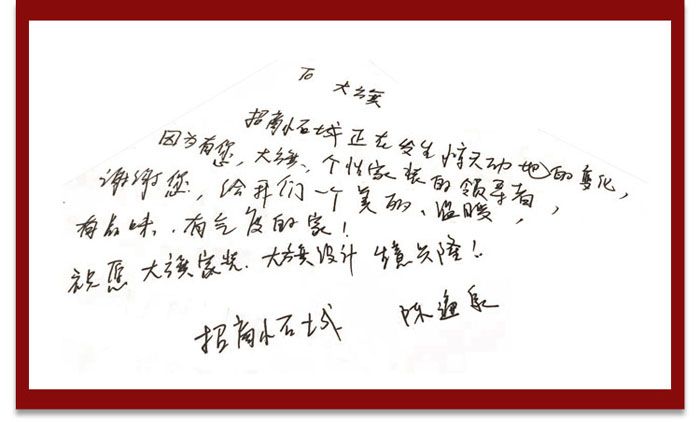 TO 大璞
招商小石城正在发生惊天动地的变化，
因为有您，大璞、个性家装的领导者，
谢谢您，给我们一个美的、温暖，
有品味、有气度的家！
祝愿 大璞家装、大璞设计 生意兴隆！
招商小石城 陈